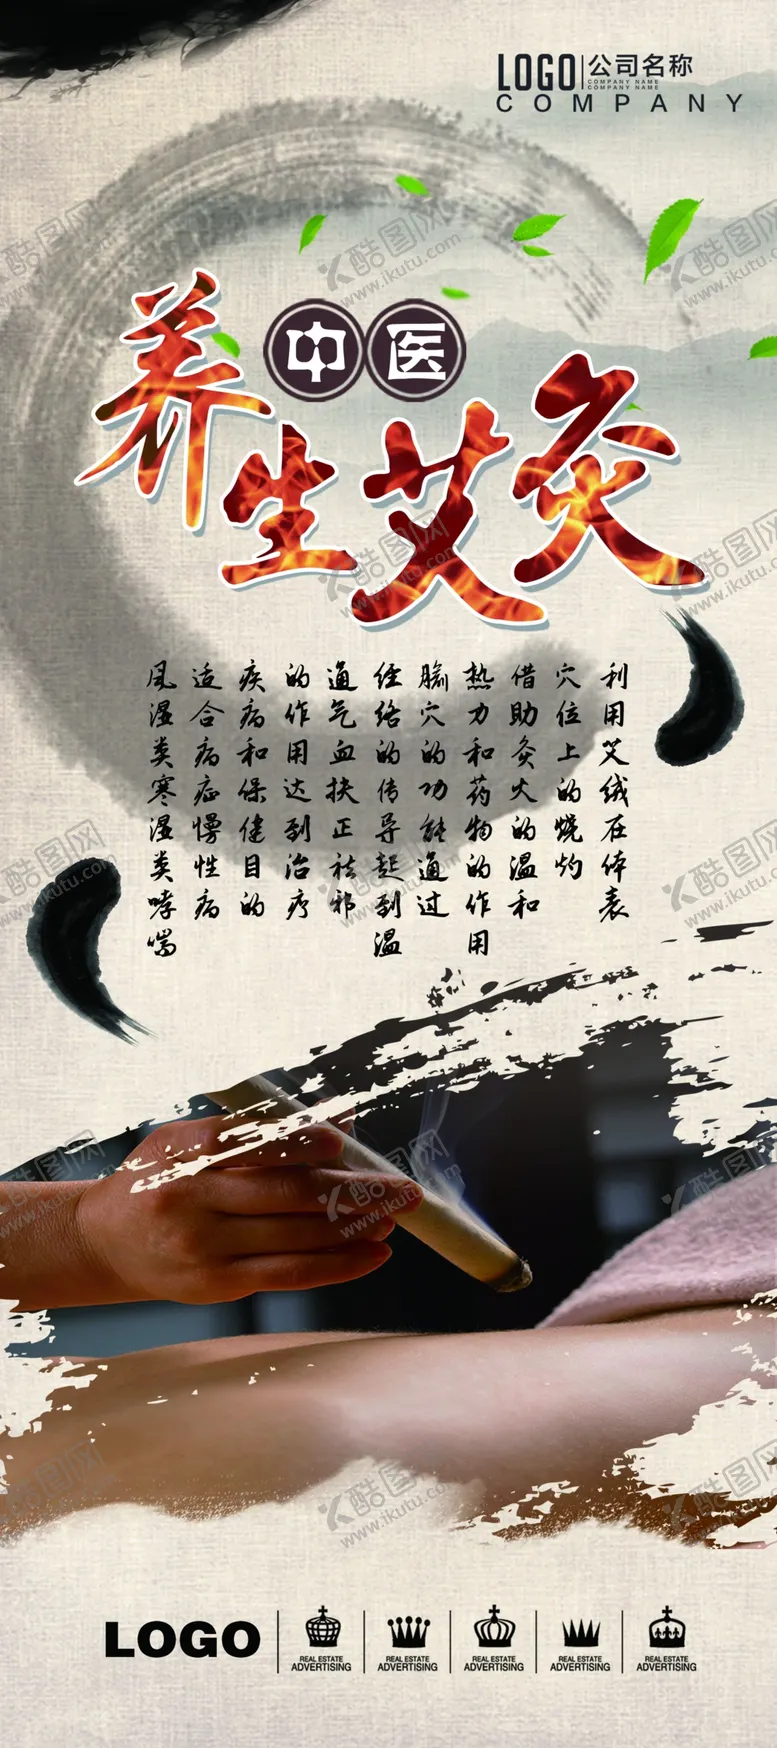 LOGO
公司名称
COMPANY NAME
COMPANY NAME
COMPANY
中医
养生艾灸
利用艾绒在体表
穴位上的烧灼
借助灸火的温和
热力和药物的作用
腧穴的功能通过
经络的传导起到温
通气血扶正祛邪
的作用达到治疗
疾病和保健目的
适合病症慢性病
风湿类寒湿类哮喘
LOGO
REAL ESTATE
ADVERTISING
REAL ESTATE
ADVERTISING
REAL ESTATE
ADVERTISING
REAL ESTATE
ADVERTISING
REAL ESTATE
ADVERTISING
酷图网
www.ikutu.com